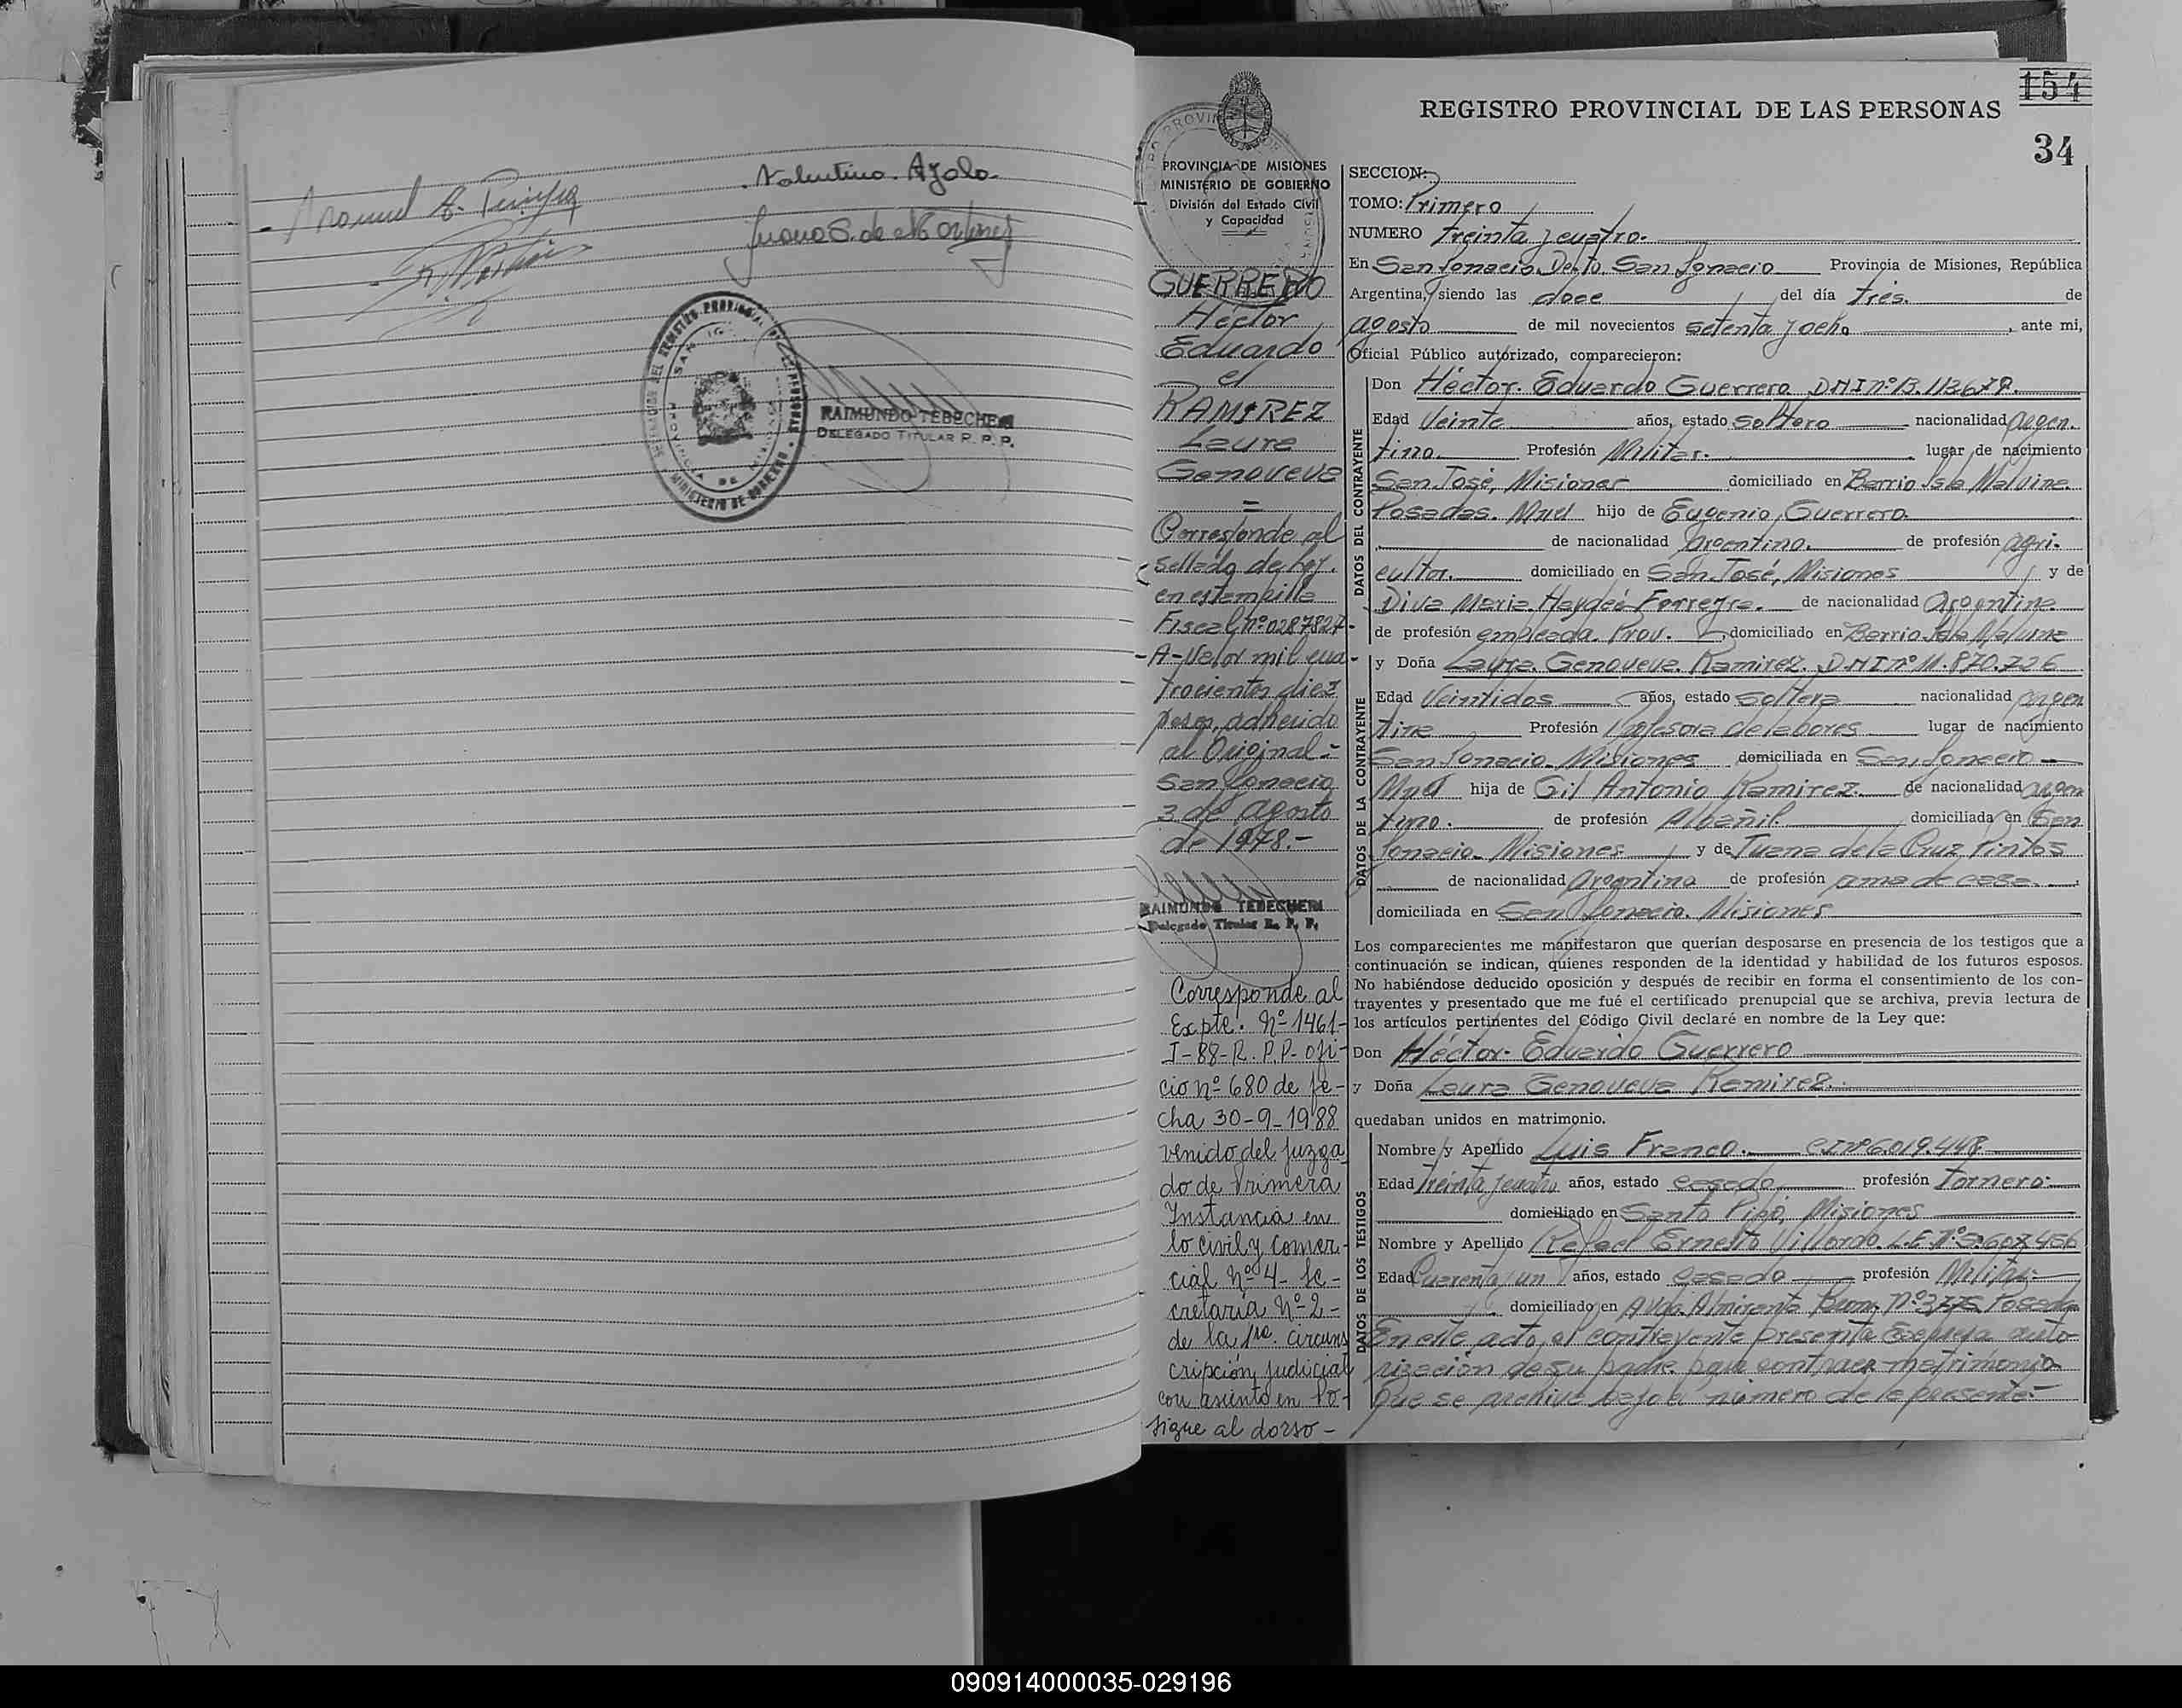 Valentina Ayala
Juana S. de Martinez
RAIMUNDO TEBECHERI
DELEGADO TITULAR R. P. P.
154
REGISTRO PROVINCIAL DE LAS PERSONAS
34
PROVINCIA DE MISIONES
MINISTERIO DE GOBIERNO
División del Estado Civil
y Capacidad
GUERRERO
Héctor
Eduardo
el
RAMIREZ
Laura
Genoveva
=
Corresponde al
sellado de ley.
en estampilla
Fiscal nº 0287827-
-A-Valor mil cua-
trocientos diez
pesos, adherido
al Original-
San Ignacio
3 de agosto
de 1978.-
RAIMUNDO TEBECHERI
Delegado Titular R. P. P.
Corresponde al
Expte. Nº 1461-
J-88-R.P.P- ofi-
cio nº 680 de fe-
cha 30-9-1988
venido del Juzga
do de Primera
Instancia en
lo civil y comer-
cial Nº 4- Se-
cretaría Nº 2-
de la 1ra. circuns
cripción Judicial
con asiento en Po-
sigue al dorso-
SECCION:
TOMO: Primero
NUMERO treinta y cuatro.
En San Ignacio, Depto. San Ignacio Provincia de Misiones, República
Argentina, siendo las doce del día tres de
agosto de mil novecientos setenta y ocho, ante mi,
Oficial Público autorizado, comparecieron:
DATOS DEL CONTRAYENTE
Don Héctor Eduardo Guerrero DNI nº 13.113.679.
Edad Veinte años, estado soltero nacionalidad argen.
tino. Profesión Militar. lugar de nacimiento
San José, Misiones domiciliado en Barrio Isla Malvina
Posadas. Mnes hijo de Eugenio Guerrero
de nacionalidad argentino. de profesión agri-
cultor. domiciliado en San José, Misiones y de
Diva Maria Haydeé Ferreyra. de nacionalidad argentina
de profesión empleada Prov. domiciliado en Barrio Isla Malvina
DATOS DE LA CONTRAYENTE
y Doña Laura Genoveva Ramirez. DNI nº 11.870.706
Edad Veintidos años, estado soltera nacionalidad argen
tina Profesión Profesora de labores lugar de nacimiento
San Ignacio- Misiones domiciliada en San Ignacio
Mnes hija de Gil Antonio Ramirez. de nacionalidad argen
tino. de profesión Albañil. domiciliada en San
Ignacio- Misiones y de Juana de la Cruz Pintos
de nacionalidad argentina de profesión ama de casa.
domiciliada en San Ignacio. Misiones
Los comparecientes me manifestaron que querían desposarse en presencia de los testigos que a
continuación se indican, quienes responden de la identidad y habilidad de los futuros esposos.
No habiéndose deducido oposición y después de recibir en forma el consentimiento de los con-
trayentes y presentado que me fué el certificado prenupcial que se archiva, previa lectura de
los artículos pertinentes del Código Civil declaré en nombre de la Ley que:
Don Héctor Eduardo Guerrero
y Doña Laura Genoveva Ramirez.
quedaban unidos en matrimonio.
DATOS DE LOS TESTIGOS
Nombre y Apellido Luis Franco. CI nº 6.019.448
Edad treinta y cuatro años, estado casado profesión Tornero
domiciliado en Santo Pipó, Misiones
Nombre y Apellido Rafael Ernesto Villordo L.E. Nº
Edad Cuarenta y un años, estado casado profesión Militar
domiciliado en Avda. Almirante Brown Nº Posadas
En este acto, el contrayente presenta Escritura auto-
rización de su padre para contraer matrimonio
que se archiva bajo el número de la presente.-
090914000035-029196